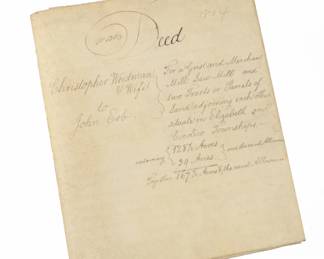 1814
Deed
Christopher Wortman
& Wife
to
John Eeb
For a Grist and Merchan
Mill, Saw Mill and
two Tracts or Parcels of
Land adjoining each other
situate in Elizabeth and
Townships.
128½ Acres
39 Acres
and the usual Allowance
Together 167½ Acres & the usual Allowance